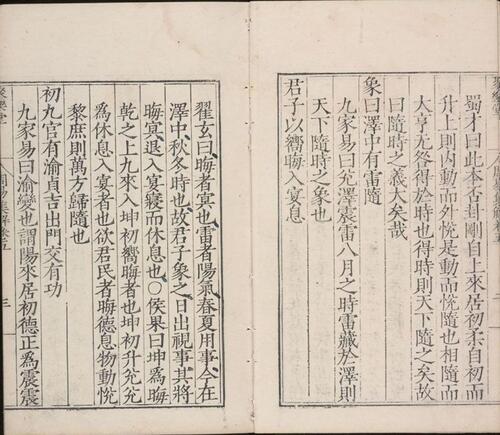 蜀才曰此本否卦剛自上來居初柔自初而
升上則內動而外悅是動而悅隨也相隨而
大亨无咎得於時也得時則天下隨之矣故
曰隨時之義大矣哉
象曰澤中有雷隨
九家易曰兌澤震雷八月之時雷藏於澤則
天下隨時之象也
君子以嚮晦入宴息
翟玄曰晦者冥也雷者陽氣春夏用事今在
澤中秋冬時也故君子象之日出視事其將
晦冥退入宴寢而休息也○侯果曰坤為晦
乾之上九來入坤初嚮晦者也坤初升兌兌
為休息入宴者也欲君民者晦德息物動悅
黎庶則萬方歸隨也
初九官有渝貞吉出門交有功
九家易曰渝變也謂陽來居初德正為震震
聚樂堂
周易集解卷五
三